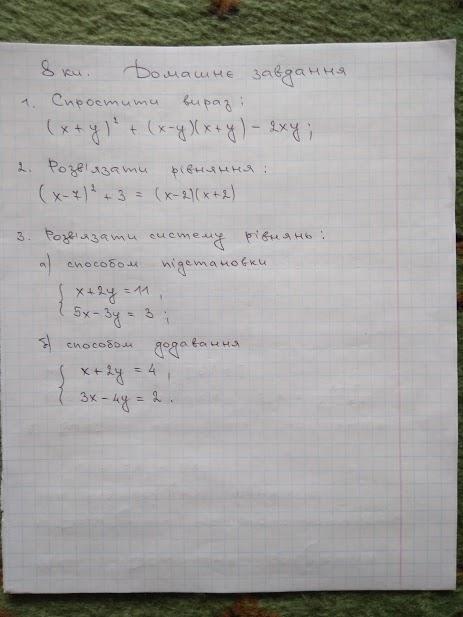 8 кл. Домашнє завдання
1. Спростити вираз:
(x+y)² + (x-y)(x+y) - 2xy;
2. Розв'язати рівняння:
(x-7)² + 3 = (x-2)(x+2)
3. Розв'язати систему рівнянь:
а) способом підстановки
{ x+2y = 11,
5x-3y = 3;
б) способом додавання
{ x+2y = 4,
3x-4y = 2.